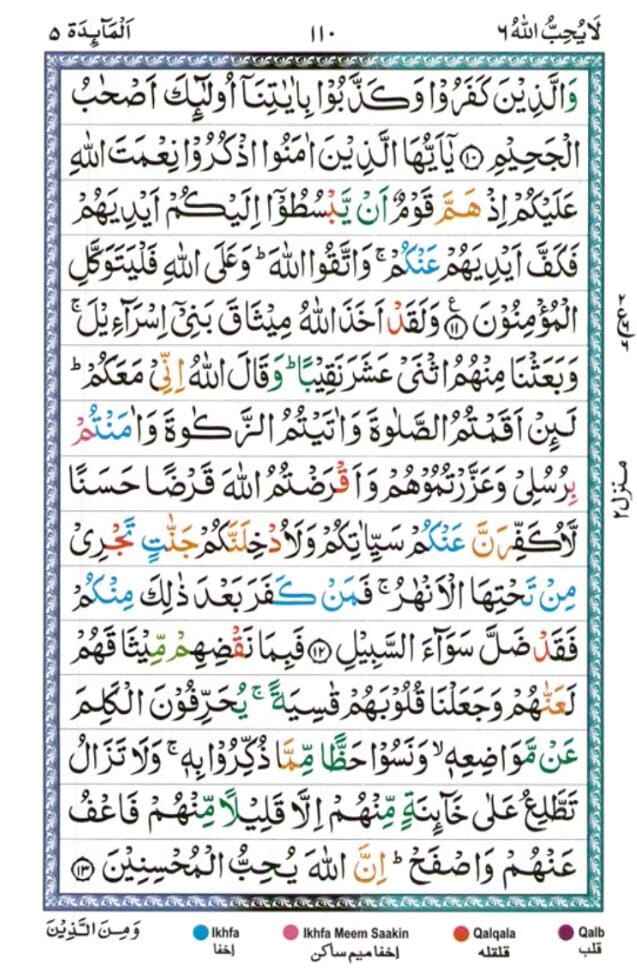 لَا يُحِبُّ اللهُ ٦ ١١٠ اَلْمَآئِدَة ٥
وَالَّذِيْنَ كَفَرُوْا وَكَذَّبُوْا بِاٰيٰتِنَاۤ اُولٰٓئِكَ اَصْحٰبُ
الْجَحِيْمِ ١٠ يٰۤاَيُّهَا الَّذِيْنَ اٰمَنُوا اذْكُرُوْا نِعْمَتَ اللهِ
عَلَيْكُمْ اِذْ هَمَّ قَوْمٌ اَنْ يَّبْسُطُوْۤا اِلَيْكُمْ اَيْدِيَهُمْ
فَكَفَّ اَيْدِيَهُمْ عَنْكُمْ ۚ وَاتَّقُوا اللهَ ؕ وَعَلَى اللهِ فَلْيَتَوَكَّلِ
الْمُؤْمِنُوْنَ ١١ ع وَلَقَدْ اَخَذَ اللهُ مِيْثَاقَ بَنِيْۤ اِسْرَآءِيْلَ ۚ
وَبَعَثْنَا مِنْهُمُ اثْنَيْ عَشَرَ نَقِيْبًا ؕ وَقَالَ اللهُ اِنِّيْ مَعَكُمْ ؕ
لَئِنْ اَقَمْتُمُ الصَّلٰوةَ وَاٰتَيْتُمُ الزَّكٰوةَ وَاٰمَنْتُمْ
بِرُسُلِيْ وَعَزَّرْتُمُوْهُمْ وَاَقْرَضْتُمُ اللهَ قَرْضًا حَسَنًا
لَّاُكَفِّرَنَّ عَنْكُمْ سَيِّاٰتِكُمْ وَلَاُدْخِلَنَّكُمْ جَنّٰتٍ تَجْرِيْ
مِنْ تَحْتِهَا الْاَنْهٰرُ ۚ فَمَنْ كَفَرَ بَعْدَ ذٰلِكَ مِنْكُمْ
فَقَدْ ضَلَّ سَوَآءَ السَّبِيْلِ ١٢ فَبِمَا نَقْضِهِمْ مِّيْثَاقَهُمْ
لَعَنّٰهُمْ وَجَعَلْنَا قُلُوْبَهُمْ قٰسِيَةً ۚ يُحَرِّفُوْنَ الْكَلِمَ
عَنْ مَّوَاضِعِهٖ ۙ وَنَسُوْا حَظًّا مِّمَّا ذُكِّرُوْا بِهٖ ۚ وَلَا تَزَالُ
تَطَّلِعُ عَلٰى خَآئِنَةٍ مِّنْهُمْ اِلَّا قَلِيْلًا مِّنْهُمْ فَاعْفُ
عَنْهُمْ وَاصْفَحْ ؕ اِنَّ اللهَ يُحِبُّ الْمُحْسِنِيْنَ ١٣
منزل ٢
وَمِنَ الَّذِيْنَ
Ikhfa Ikhfa Meem Saakin Qalqala Qalb
اخفا اخفا میم ساکن قلقله قلب